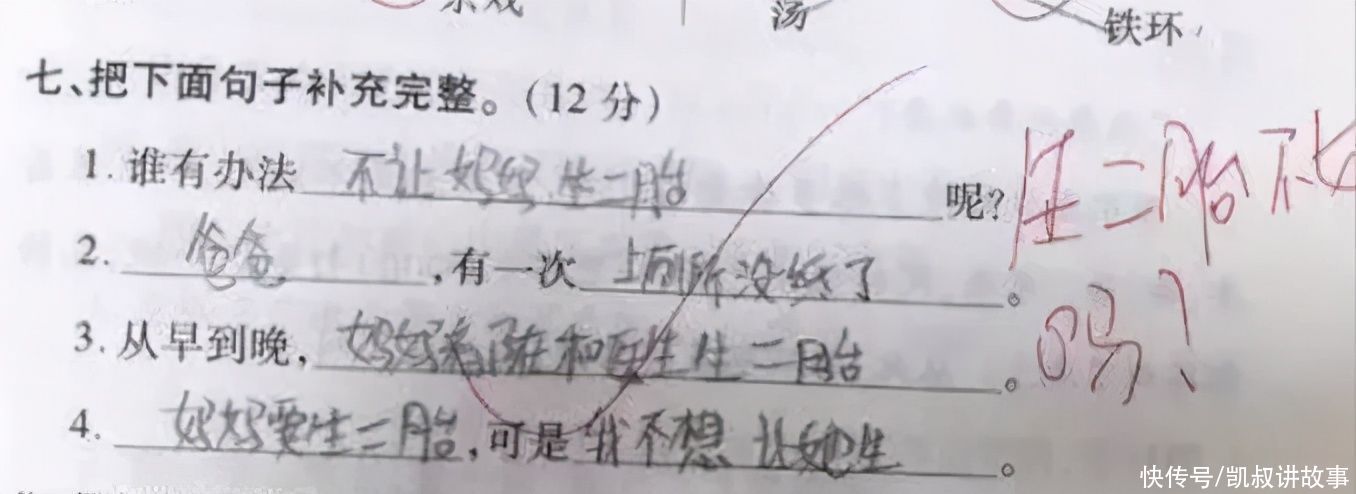 汤
铁环
七、把下面句子补充完整。(12分)
1.谁有办法 不让妈妈生二胎 呢?
生二胎不好
2. 爸爸 ,有一次 上厕所没纸了 。
吗?
3.从早到晚, 妈妈都在和医生生二胎 。
4. 妈妈要生二胎 ,可是 我不想让她生 。
快传号/凯叔讲故事